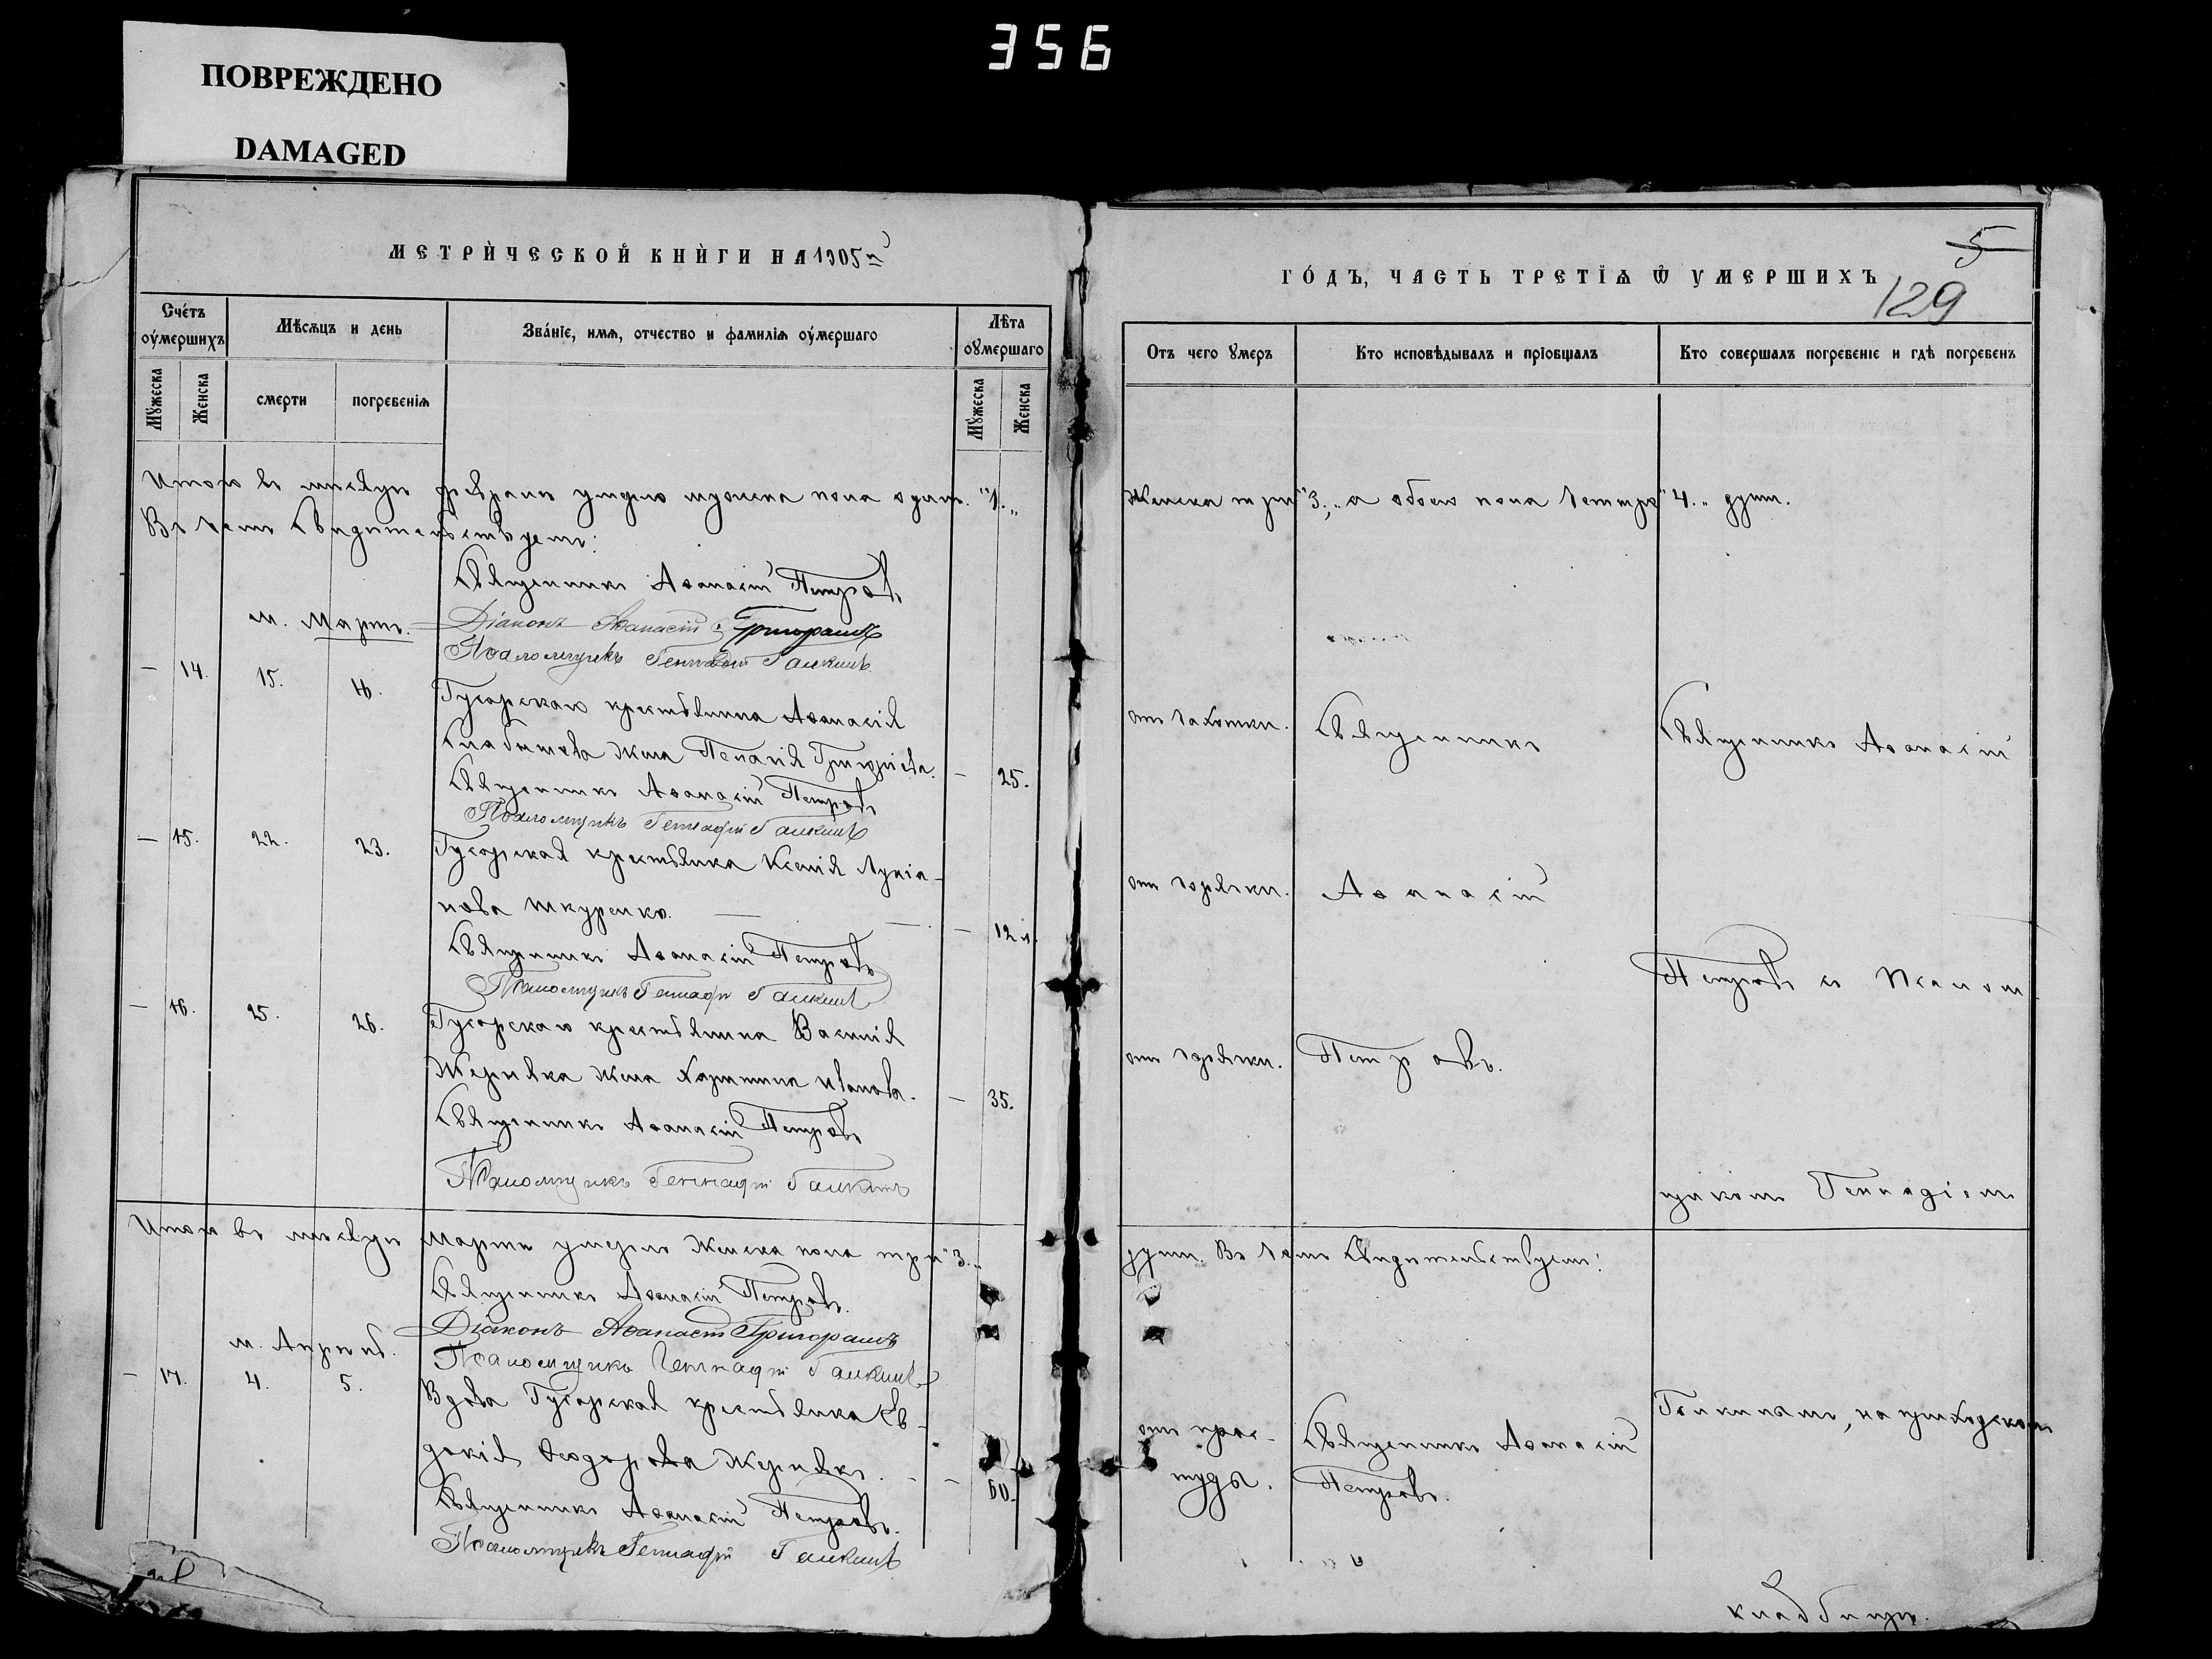 356
ПОВРЕЖДЕНО
DAMAGED
МЕТРИЧЕСКОЙ КНИГИ НА 1905 г.
Счетъ оумершихъ
Мѣсяцъ и день
Званіе, имя, отчество и фамилія оумершаго
Лѣта оумершаго
Мужеска
Женска
смерти
погребенія
Мужеска
Женска
Итого въ мѣсяцѣ февралѣ умерло мужеска пола одинъ "1."
Въ чемъ свидѣтельствуемъ:
Священникъ Аѳанасій Петровъ
м. Мартъ.
Діаконъ Аѳанасій Григорашъ
Псаломщикъ Геннадій Галкинъ
— 14. 15. 16. Гусарскаго крестьянина Аѳанасія
жена Пелагія Григоріева. — 25.
Священникъ Аѳанасій Петровъ
Псаломщикъ Геннадій Галкинъ
— 15. 22. 23. Гусарская крестьянка Ксенія Лукіа-
нова Шкуренко. — 12 л.
Священникъ Аѳанасій Петровъ
Псаломщикъ Геннадій Галкинъ
— 16. 25. 26. Гусарскаго крестьянина Василія
Жерняка жена Харитина Иванова. — 35.
Священникъ Аѳанасій Петровъ
Псаломщикъ Геннадій Галкинъ
Итого въ мѣсяцѣ Мартѣ умерло женска пола три "3."
Священникъ Аѳанасій Петровъ.
Діаконъ Аѳанасій Григорашъ
м. Апрель.
Псаломщикъ Геннадій Галкинъ
— 17. 4. 5. Вдова Гусарская крестьянка Ев-
докія Ѳеодорова Жернякъ. — 60.
Священникъ Аѳанасій Петровъ.
Псаломщикъ Геннадій Галкинъ
5
ГОДЪ, ЧАСТЬ ТРЕТІЯ Ѿ УМЕРШИХЪ
129
Отъ чего умеръ
Кто исповѣдывалъ и пріобщалъ
Кто совершалъ погребеніе и гдѣ погребенъ
Женска три "3", а обоего пола четыре "4." душ.
отъ чахотки.
Священникъ
Священникъ Аѳанасій
отъ горячки.
Аѳанасій
Петровъ съ Псалом
отъ горячки.
Петровъ.
щикомъ Геннадіемъ
душ. Въ чемъ свидѣтельствуемъ:
Галкинымъ, на приходскомъ
отъ прос-
туды.
Священникъ Аѳанасій
Петровъ.
кладбищѣ.